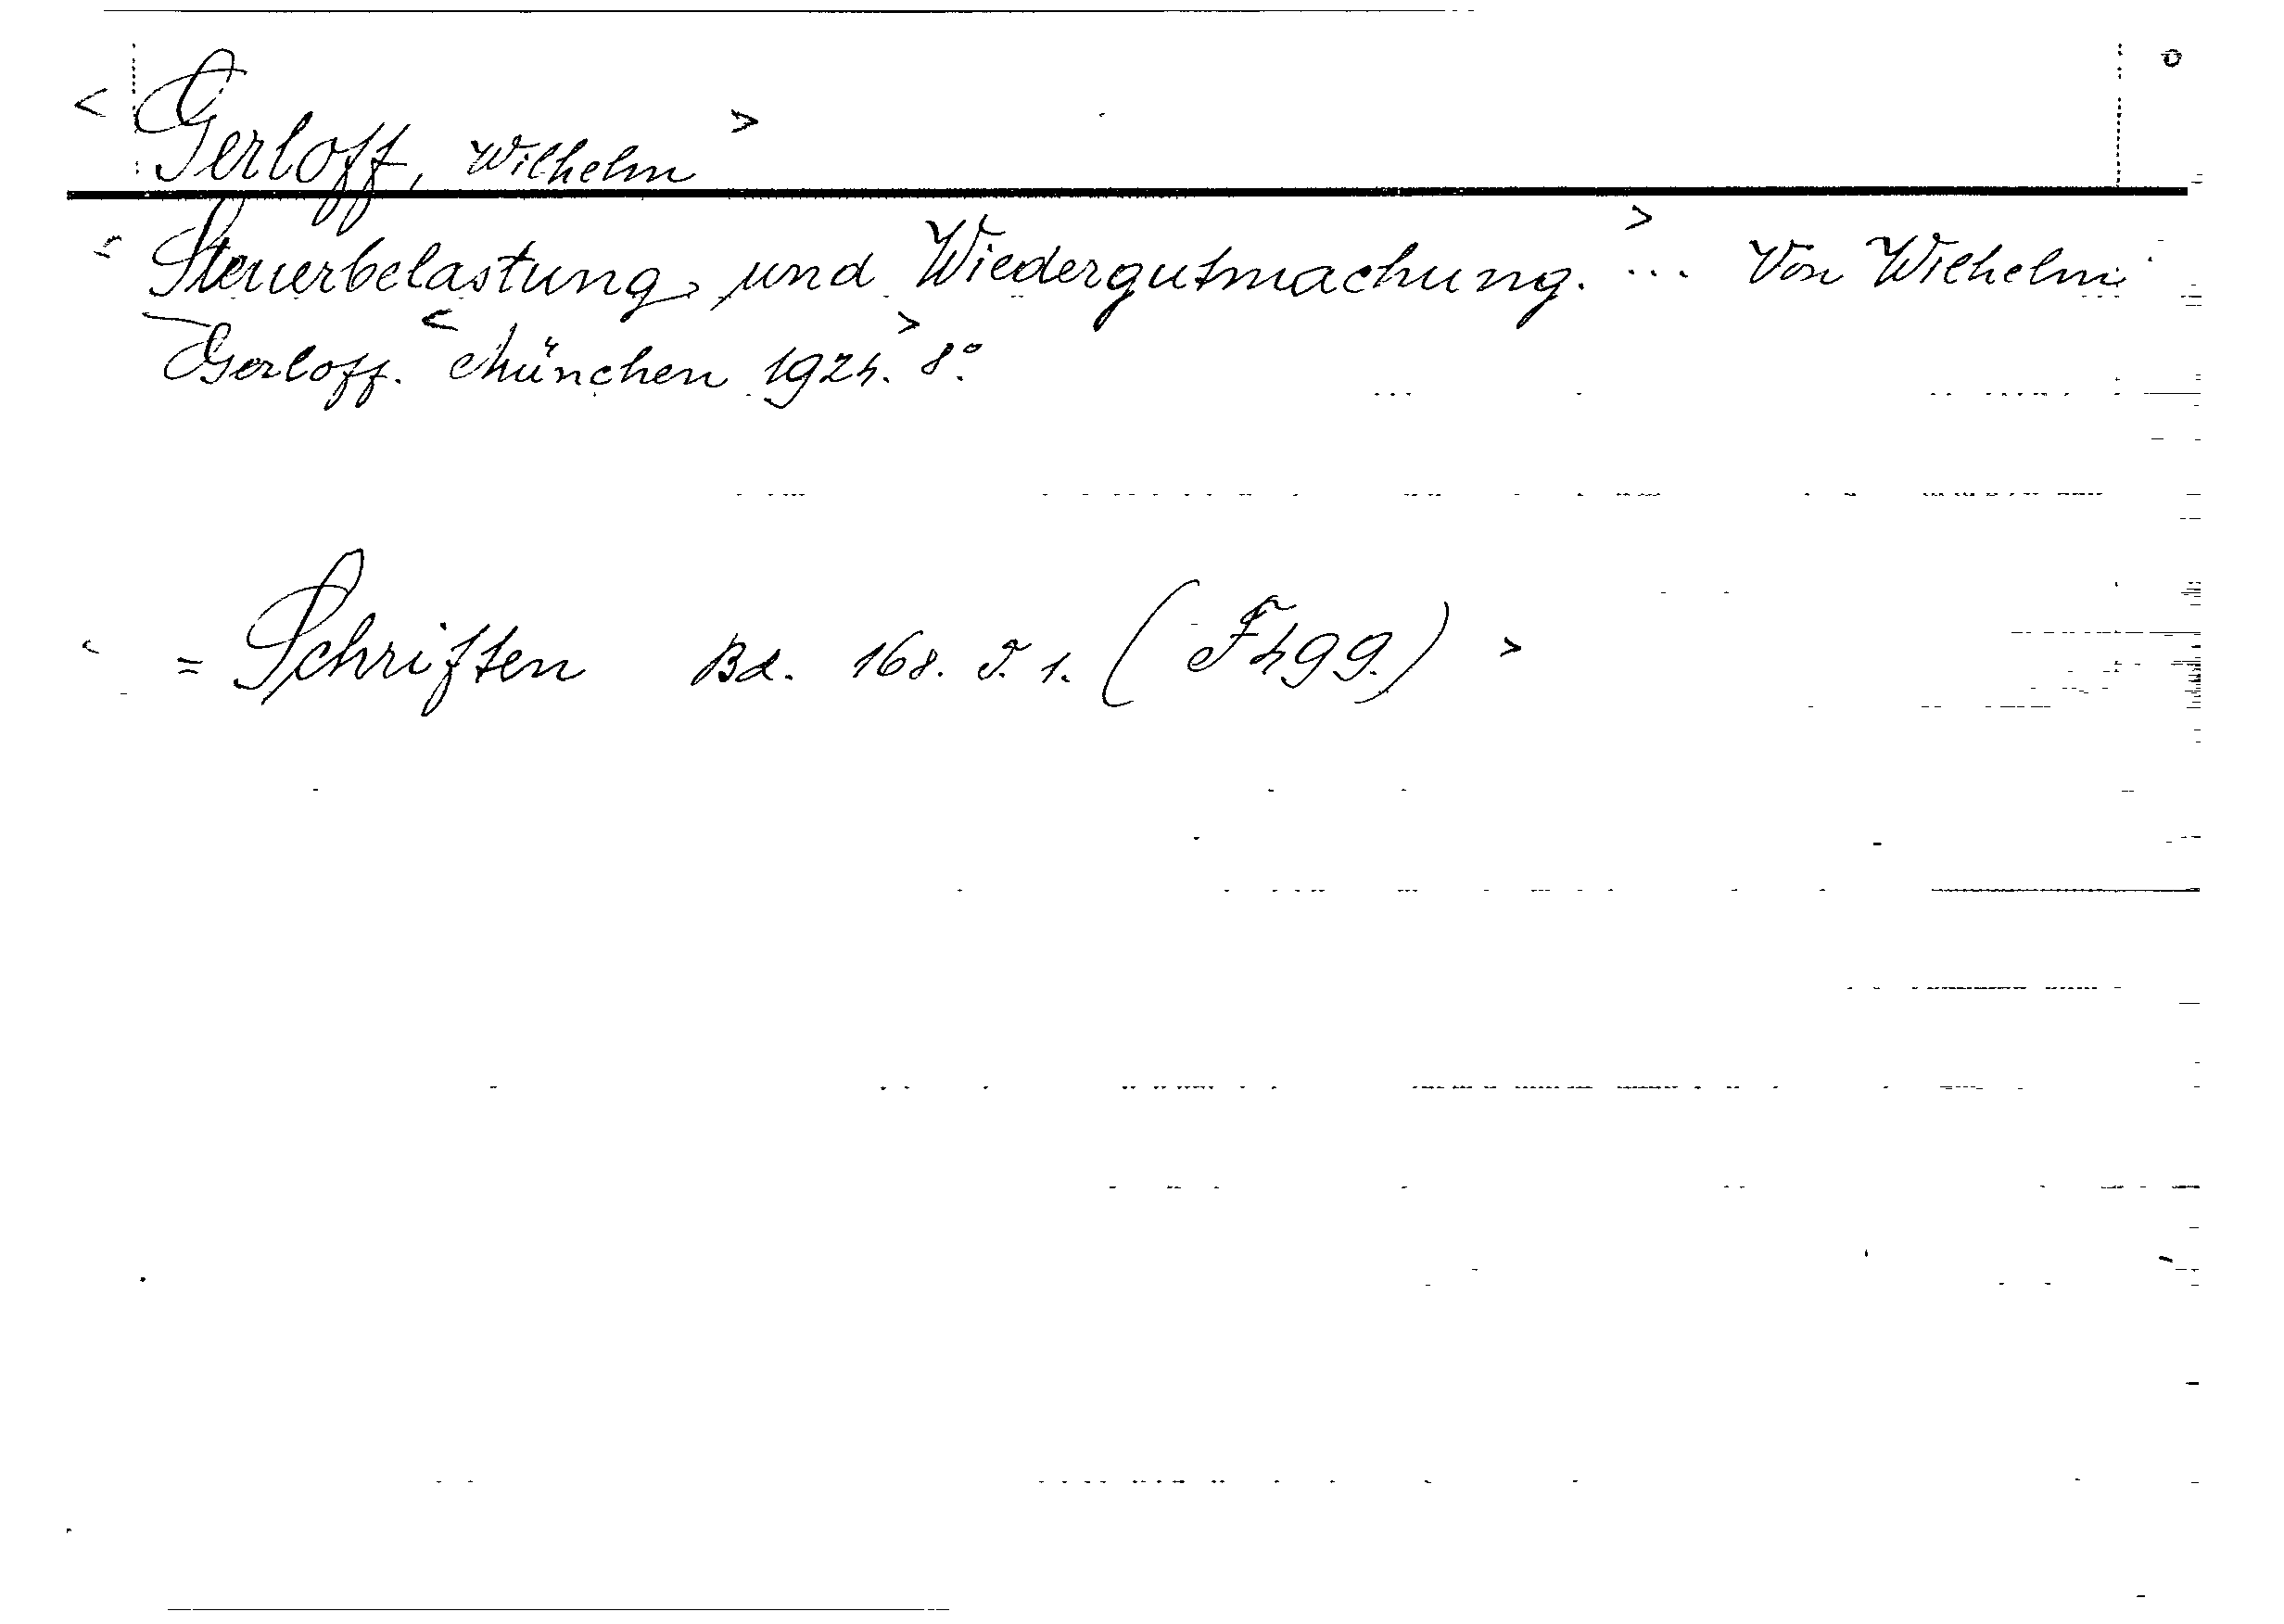 < Gerloff, Wilhelm >
< Steuerbelastung und Wiedergutmachung. > ... Von Wilhelm
Gerloff. < München 1924. > 8°.
< = Schriften Bd. 168. T. 1. (F499.) >